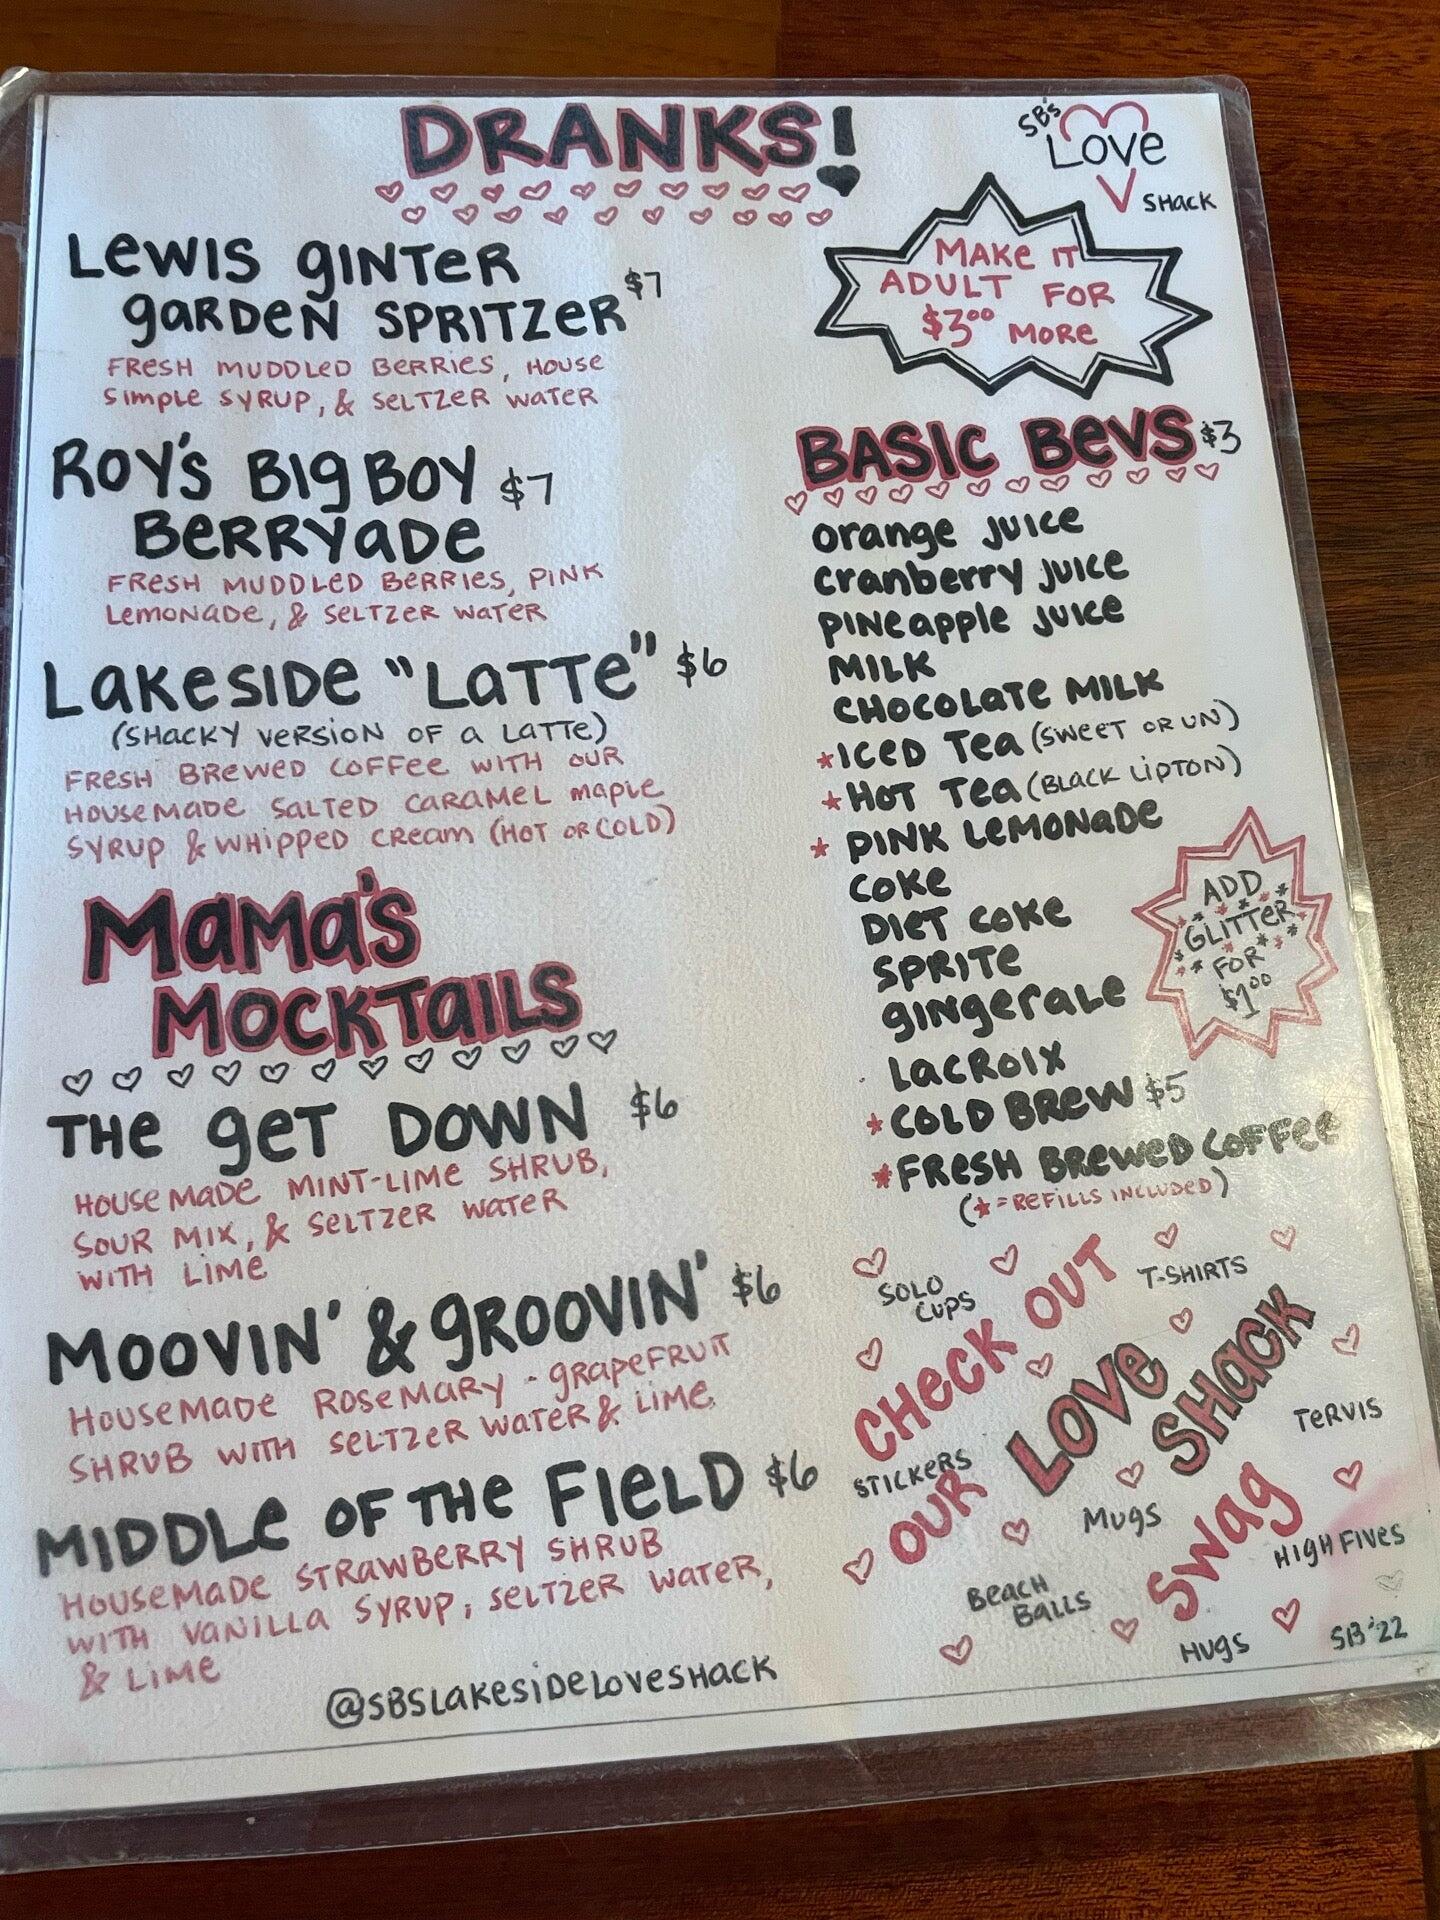 DRANKS!
SB's
Love
SHACK
Lewis ginter
garden spritzer $7
Fresh muddled berries, house
simple syrup, & seltzer water
Make it
adult for
$3.00 more
Roy's Big Boy $7
Berryade
Fresh muddled berries, pink
lemonade, & seltzer water
Lakeside "Latte" $6
(shacky version of a latte)
Fresh brewed coffee with our
housemade salted caramel maple
syrup & whipped cream (hot or cold)
Mama's
Mocktails
The get down $6
housemade mint-lime shrub,
sour mix, & seltzer water
with lime
Moovin' & groovin' $6
housemade rosemary-grapefruit
shrub with seltzer water & lime
Middle of the Field $6
housemade strawberry shrub
with vanilla syrup, seltzer water,
& lime
@sbslakesideloveshack
Basic Bevs $3
orange juice
cranberry juice
pineapple juice
milk
chocolate milk
*Iced Tea (sweet or un)
*Hot Tea (Black Lipton)
*Pink Lemonade
Coke
Diet Coke
Sprite
gingerale
Lacroix
*Cold Brew $5
*Fresh Brewed Coffee
(*=refills included)
Add
glitter
for
$1.00
Check out
our
Love
Shack
swag
Solo
Cups
T-shirts
Stickers
Tervis
Mugs
High Fives
Beach
Balls
Hugs
SB '22